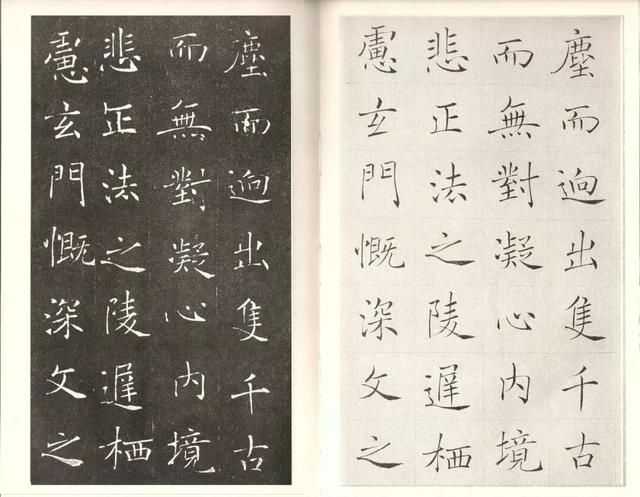 塵而逈出隻千古
而無對凝心內境
悲正法之陵遲栖
慮玄門慨深文之
塵而逈出隻千古
而無對凝心內境
悲正法之陵遲栖
慮玄門慨深文之